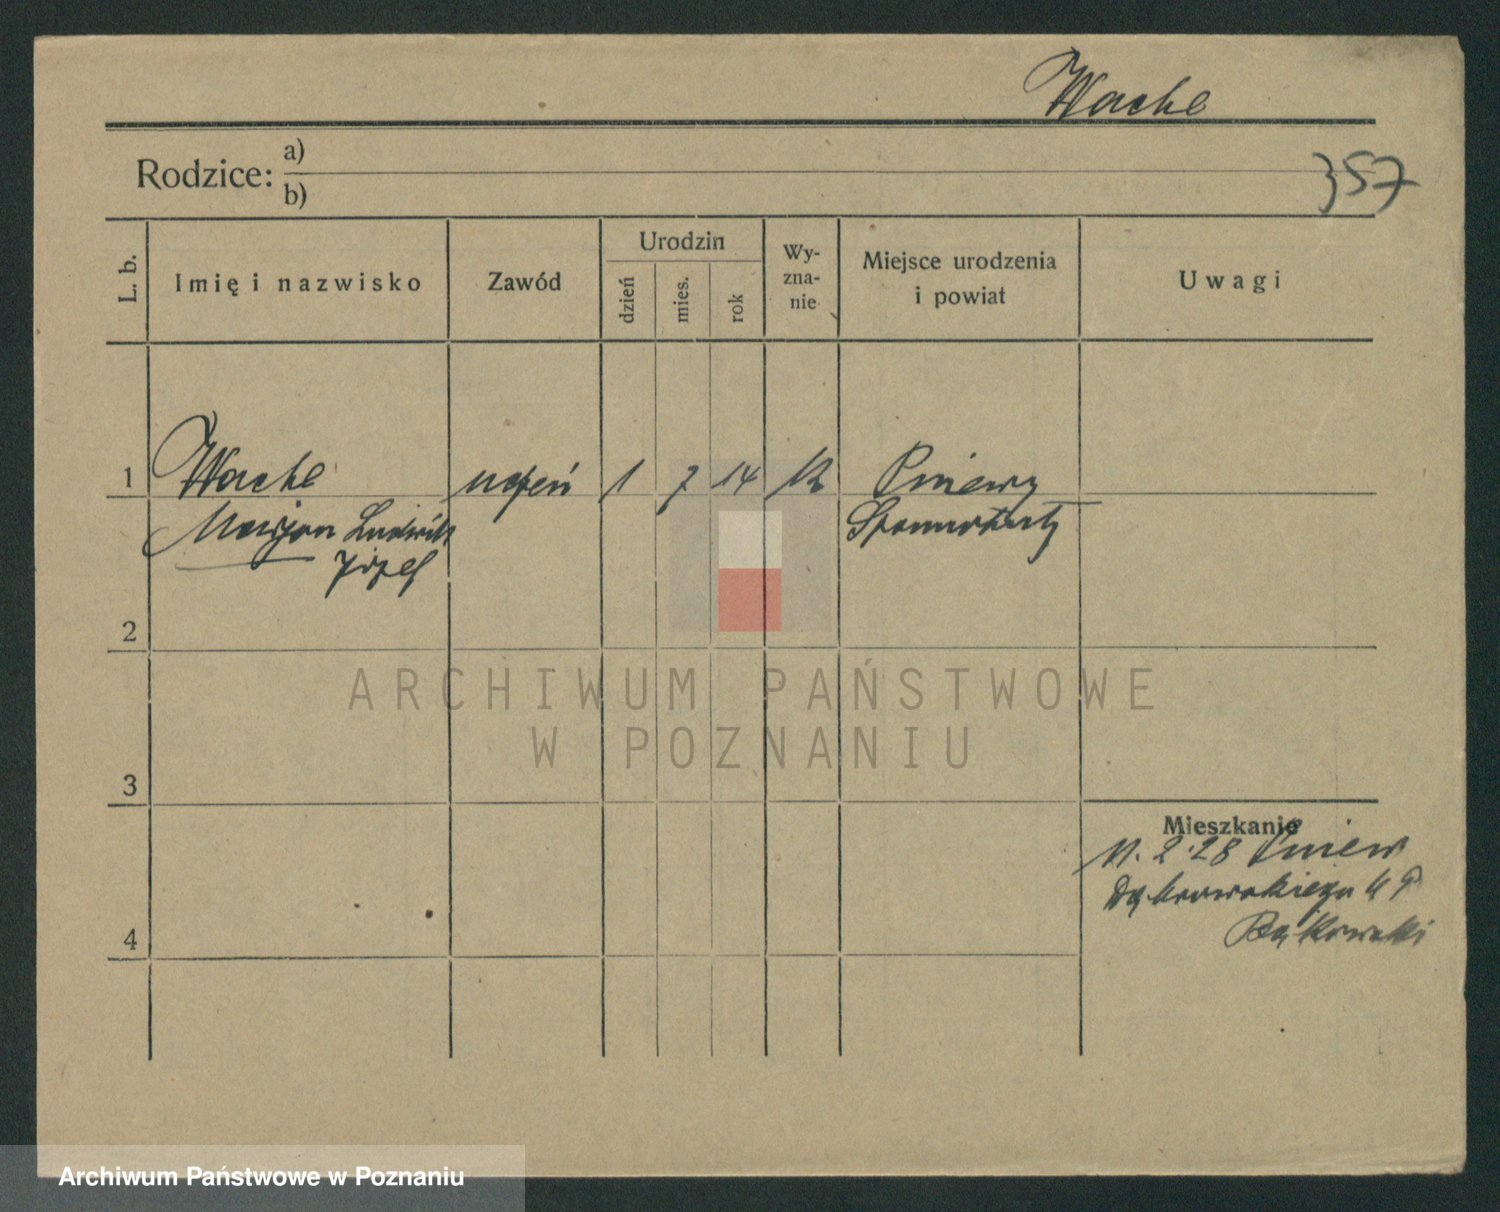 Wache
Rodzice: a)
b)
357
L. b.
Imię i nazwisko
Zawód
Urodzin
dzień
mies.
rok
Wy-
zna-
nie
Miejsce urodzenia
i powiat
Uwagi
1 Wache uczeń 1 7 14 k Pniewy
Marjan Ludwik Szamotuły
Józef
2
3
4
Mieszkanie
11. 2. 28 Pniewy
Dąbrowskiego
Bąkowski
ARCHIWUM PAŃSTWOWE
W POZNANIU
Archiwum Państwowe w Poznaniu